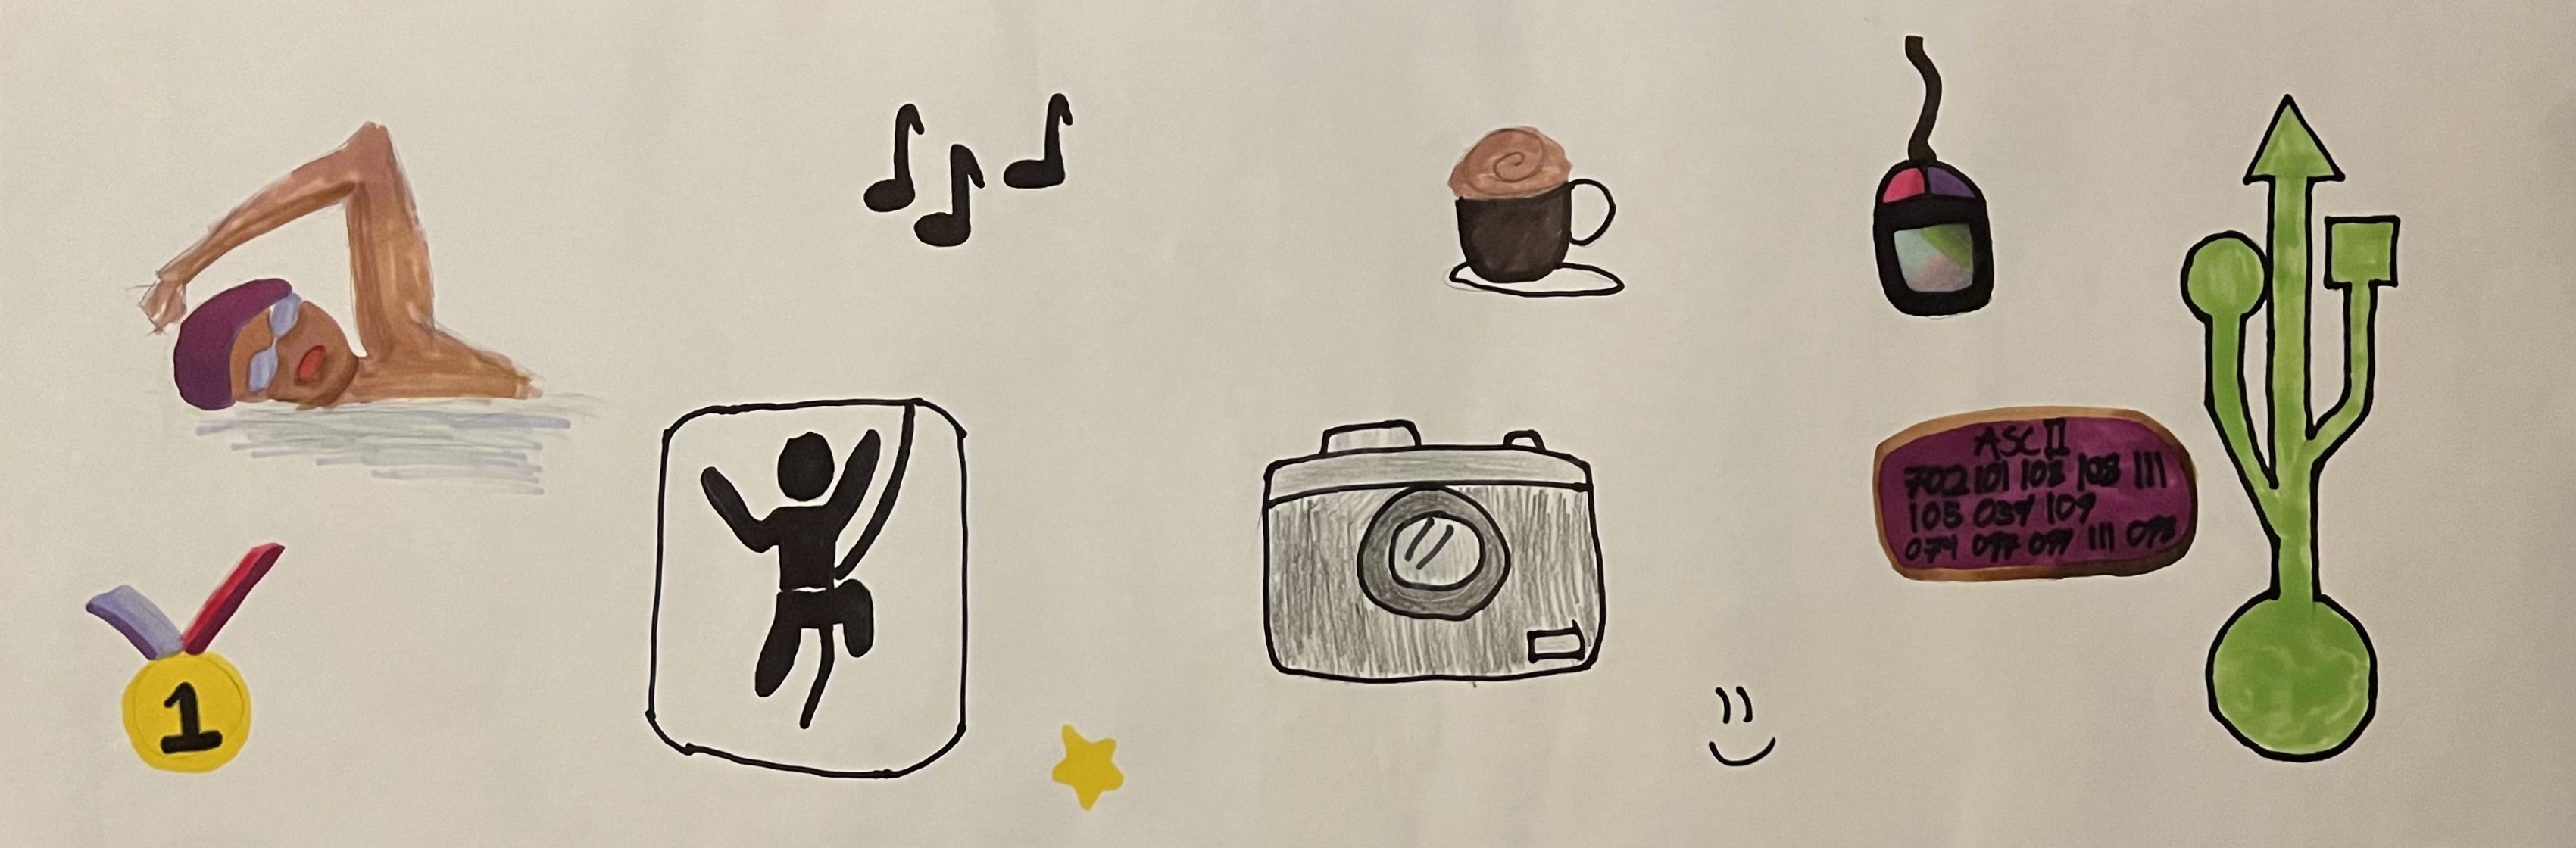 1
ASCII
702 101 108 108 111
105 039 109
074 097 099 111 098